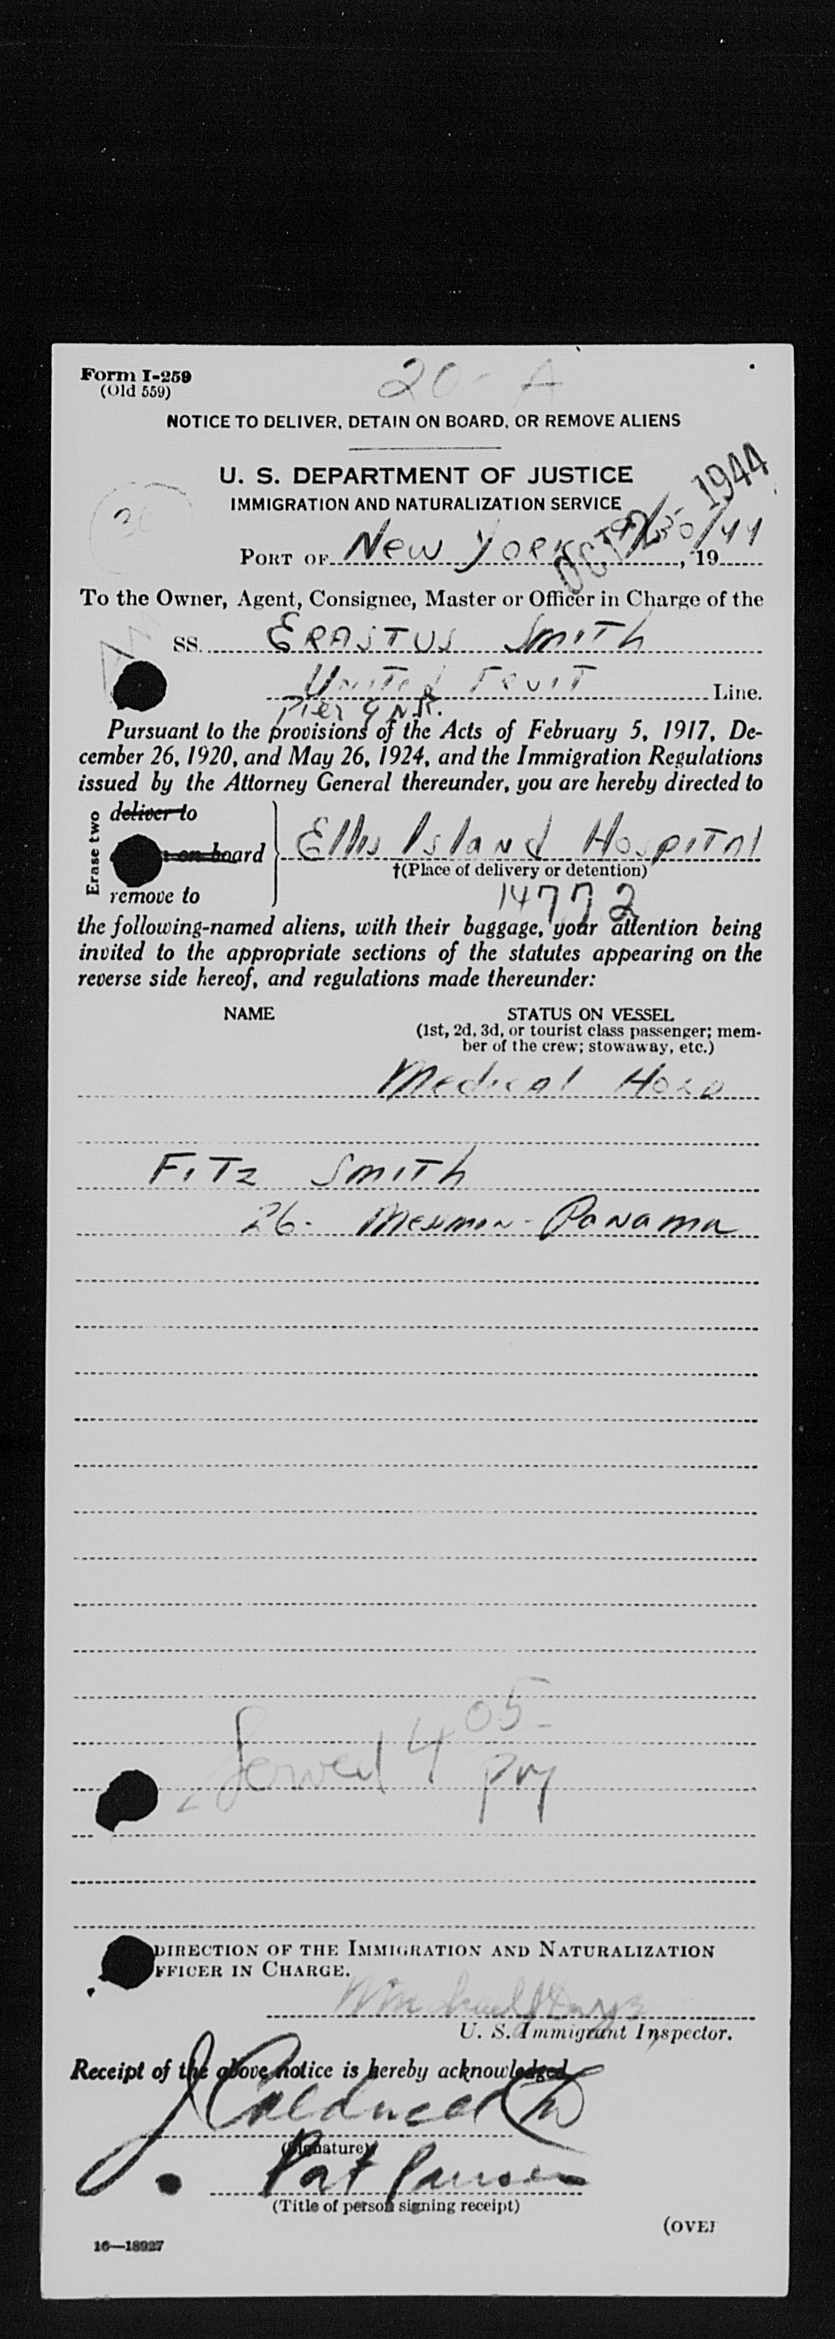 Form I-259
(Old 559)
20 - A
NOTICE TO DELIVER, DETAIN ON BOARD, OR REMOVE ALIENS
U. S. DEPARTMENT OF JUSTICE
IMMIGRATION AND NATURALIZATION SERVICE
OCT 1944
PORT OF New York 9/30/44, 19
To the Owner, Agent, Consignee, Master or Officer in Charge of the
SS. ERASTUS SMITH
United Fruit Line.
Pier 9 N.R.
Pursuant to the provisions of the Acts of February 5, 1917, De-
cember 26, 1920, and May 26, 1924, and the Immigration Regulations
issued by the Attorney General thereunder, you are hereby directed to
Erase two
deliver to
on board
Ellis Island Hospital
†(Place of delivery or detention)
remove to
14772
the following-named aliens, with their baggage, your attention being
invited to the appropriate sections of the statutes appearing on the
reverse side hereof, and regulations made thereunder:
NAME STATUS ON VESSEL
(1st, 2d, 3d, or tourist class passenger; mem-
ber of the crew; stowaway, etc.)
Medical Hold
FITZ SMITH
26 - Messman - Panama
Served 4 05 pm
DIRECTION OF THE IMMIGRATION AND NATURALIZATION
OFFICER IN CHARGE.
U. S. Immigrant Inspector.
Receipt of the above notice is hereby acknowledged
J Caldwell
(Signature)
(Title of person signing receipt)
(OVER
16—18927